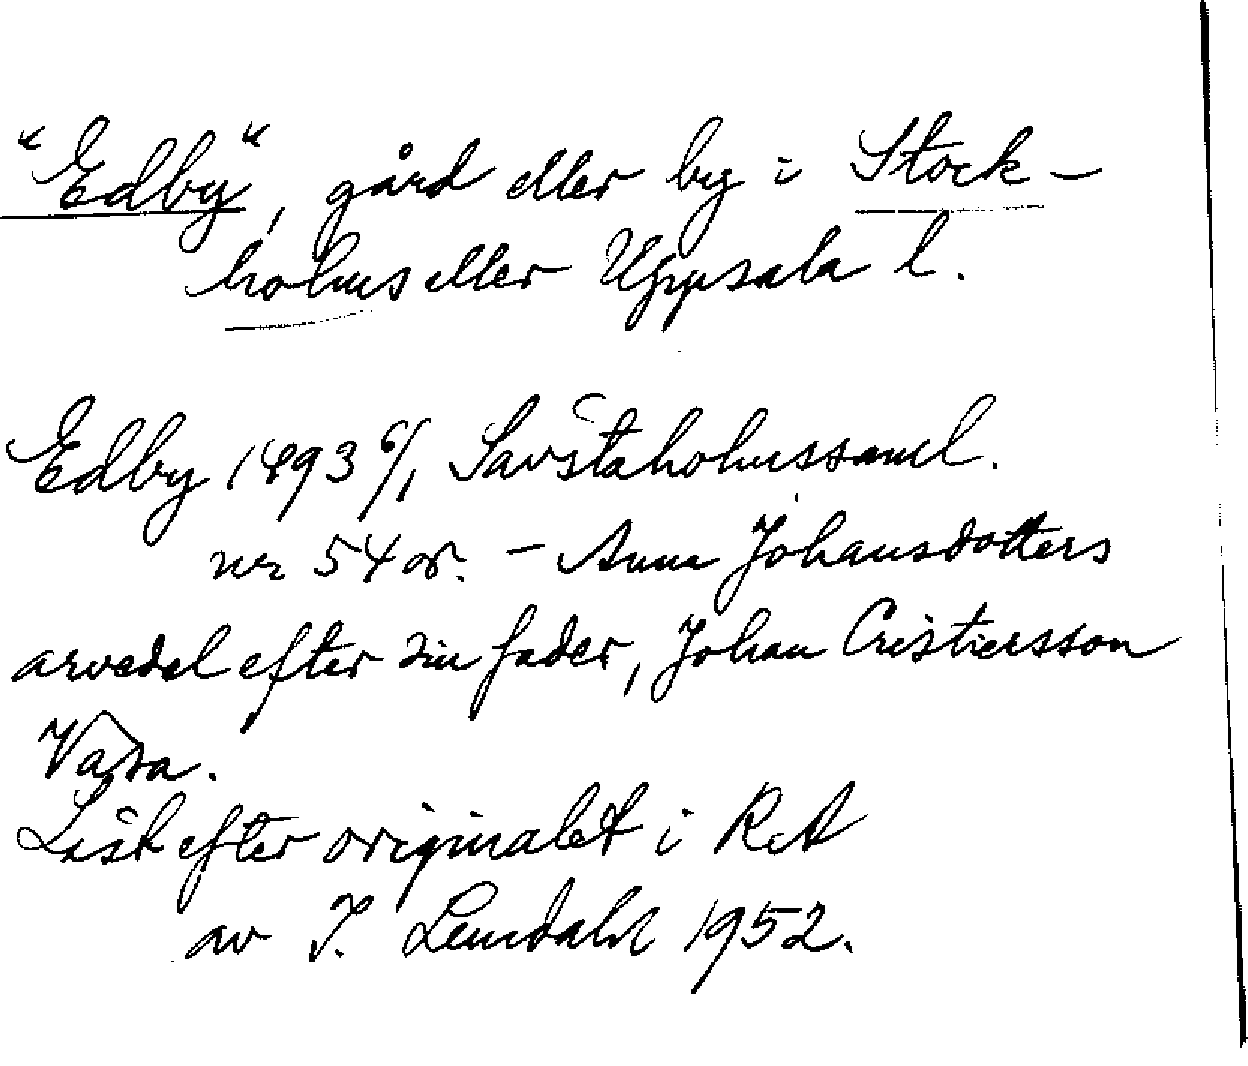 "Edby", gård eller by i Stock-
holms eller Uppsala l.
Edby 1493 6/1 Sävstaholmssaml.
nr 54 or. - Anna Johansdotters
arvedel efter sin fader, Johan Cristiersson
Vasa.
Läst efter originalet i RA
av I. Lemdahl 1952.